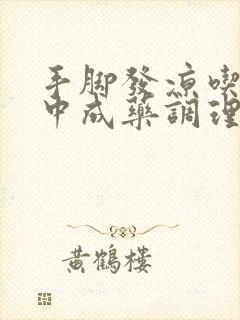 手脚發涼喫
中成藥調理
黃鶴樓